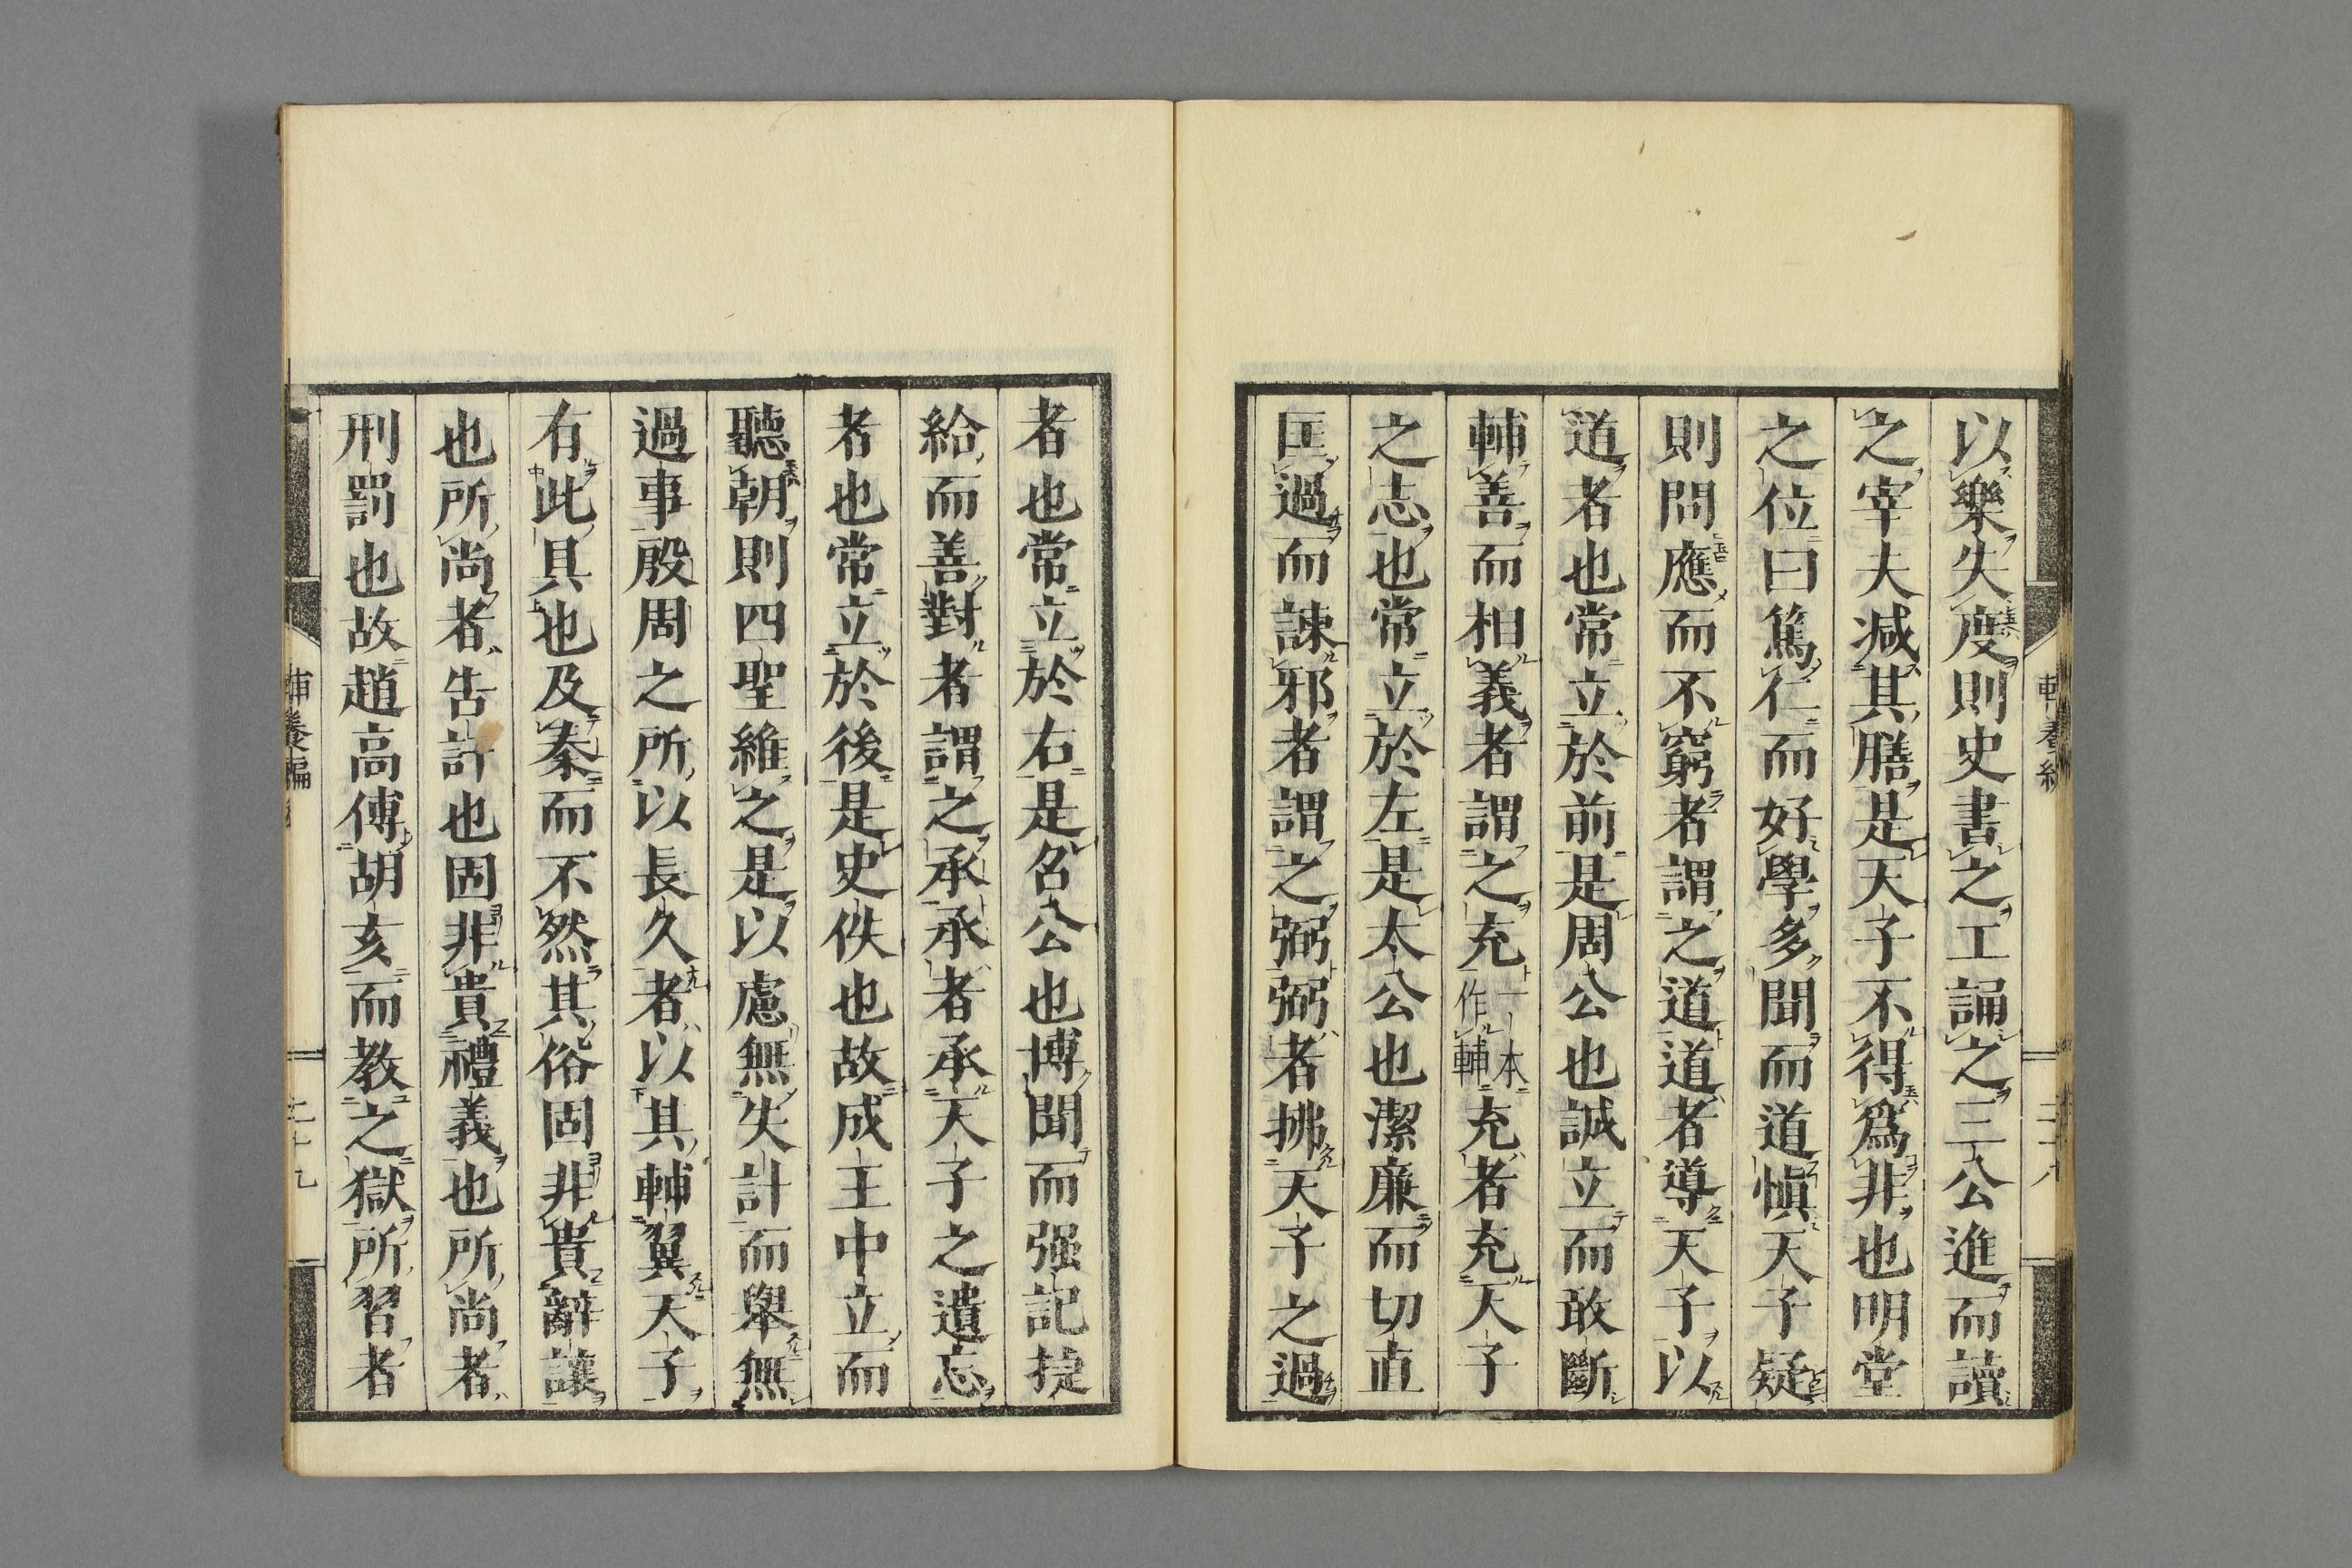 以樂失度則史書之工誦之三公進而讀
之宰夫减其膳是天子不得爲非也明堂
之位曰篤仁而好學多聞而道愼天子疑
則問應而不窮者謂之道道者導天子以
道者也常立於前是周公也誠立而敢斷
輔善而相義者謂之充一本作輔充者充天子
之志也常立於左是太公也潔廉而切直
匡過而諫邪者謂之弼弼者拂天子之過
者也常立於右是召公也博聞而强記捷
給而善對者謂之承承者承天子之遺忘
者也常立於後是史佚也故成王中立而
聽朝則四聖維之是以慮無失計而舉無
過事殷周之所以長久者以其輔翼天子
有此具也及秦而不然其俗固非貴辭讓
也所尚者告訐也固非貴禮義也所尚者
刑罰也故趙高傅胡亥而教之獄所習者